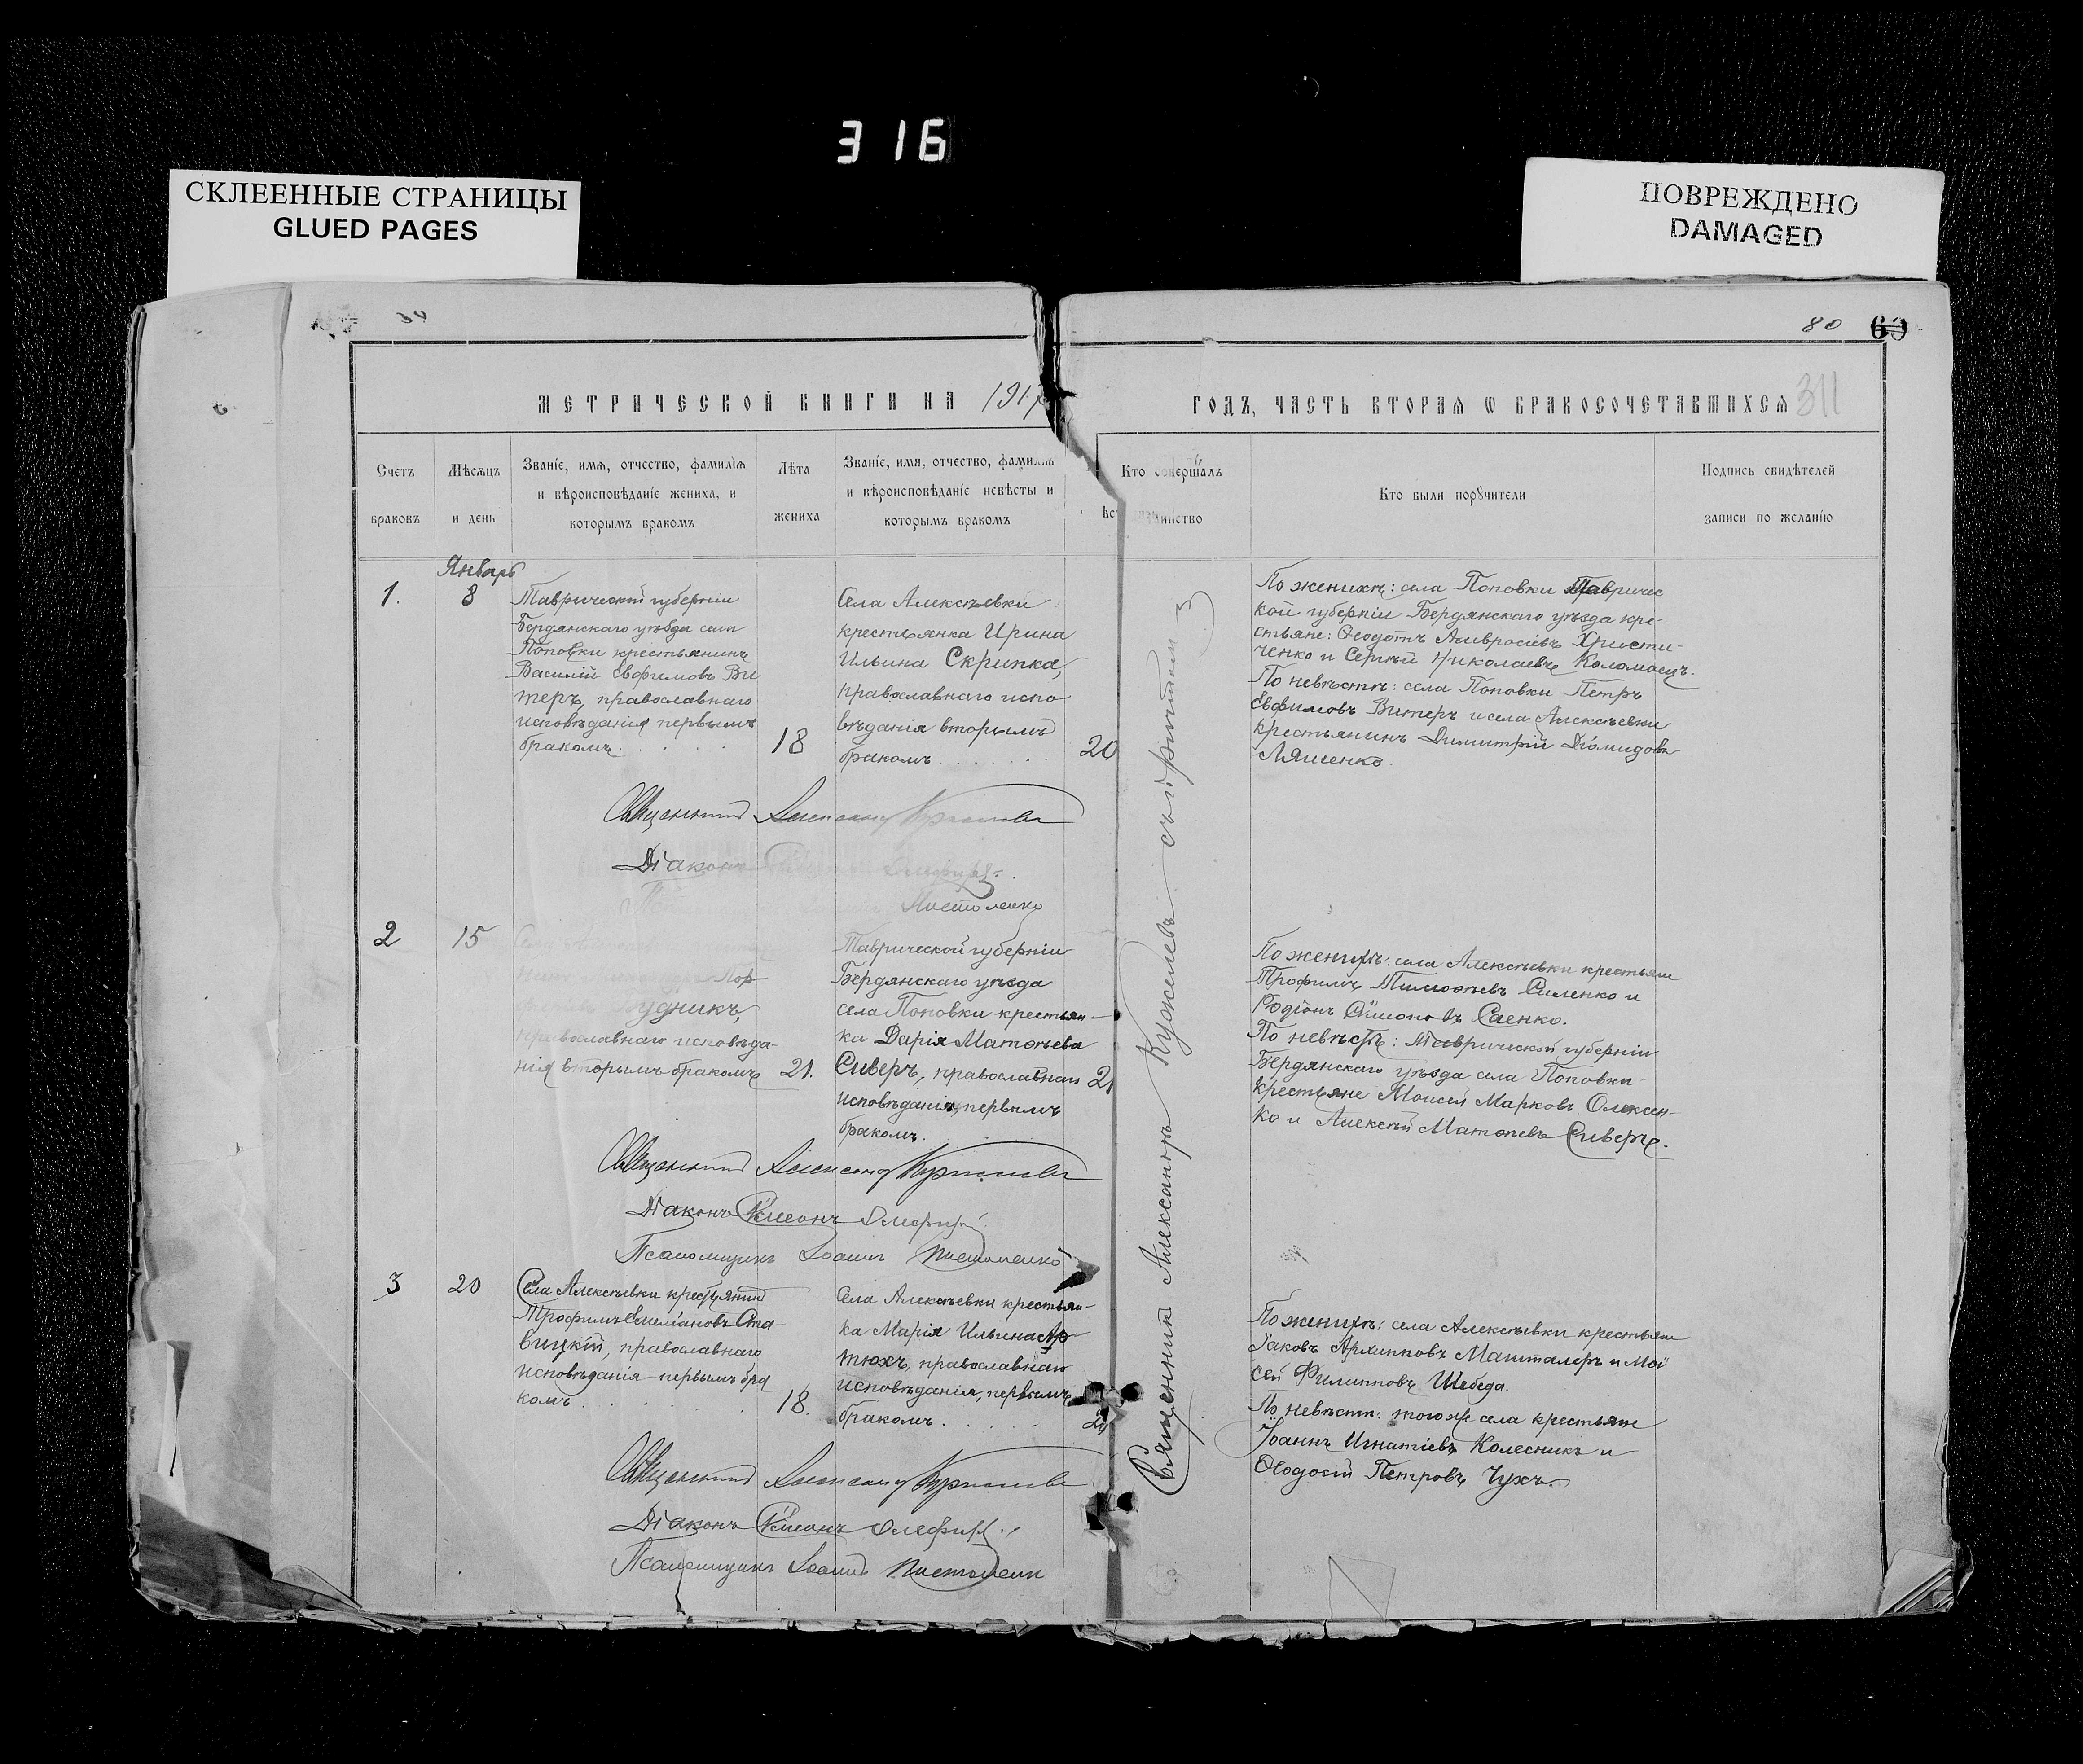 316
СКЛЕЕННЫЕ СТРАНИЦЫ
GLUED PAGES
ПОВРЕЖДЕНО
DAMAGED
80 60
МЕТРИЧЕСКОЙ КНИГИ НА 1917
ГОДЪ, ЧАСТЬ ВТОРАЯ Ѡ БРАКОСОЧЕТАВШИХСЯ 311
Счетъ
браковъ
Мѣсяцъ
и день
Званіе, имя, отчество, фамилія
и вѣроисповѣданіе жениха, и
которымъ бракомъ
Лѣта
жениха
Званіе, имя, отчество, фамилія
и вѣроисповѣданіе невѣсты и
которымъ бракомъ
Кто совершалъ
Кто были поручители
Подпись свидѣтелей
записи по желанію
Январь
1.
8
Таврической губерніи
Бердянскаго уѣзда села
Поповки крестьянинъ
Василій Евфимовъ Ви
теръ, православнаго
исповѣданія первымъ
бракомъ.
18
Села Алексѣевки
крестьянка Ирина
Ильина Скрипка,
православнаго испо
вѣданія вторымъ
бракомъ
20
По женихѣ: села Поповки Тавричес
кой губерніи Бердянскаго уѣзда кре-
стьяне: Ѳеодотъ Амвросіевъ Христи-
ченко и Сергѣй Николаевъ Коломоецъ.
По невѣстѣ: села Поповки Петръ
Евфимовъ Витеръ и села Алексѣевки
крестьянинъ Димитрій Діомидовъ
Ляшенко.
Священникъ Александръ
Діаконъ
2
15
Пор
Рудникъ,
православнаго исповѣда-
нія вторымъ бракомъ
21.
Таврической губерніи
Бердянскаго уѣзда
села Поповки крестьян-
ка Дарія Матѳѣева
Сиверъ, православнаго
исповѣданія, первымъ
бракомъ.
21
По женихѣ: села Алексѣевки крестьяне
Трофимъ Тимоѳѣевъ Силенко и
Родіонъ Симоновъ Саенко.
По невѣстѣ: Таврической губерніи
Бердянскаго уѣзда села Поповки
крестьяне Моисей Марковъ Олексен-
ко и Алексѣй Матѳѣевъ Сиверъ.
Священникъ Александръ
Діаконъ Симеонъ
Псаломщикъ Іоаннъ
3
20
Села Алексѣевки крестьянинъ
Трофимъ Емеліановъ Ста-
вицкій, православнаго
исповѣданія первымъ бра
комъ
18.
Села Алексѣевки крестьян-
ка Марія Ильина Ар
тюхъ, православнаго
исповѣданія, первымъ
бракомъ
По женихѣ: села Алексѣевки крестьяне
Іаковъ Архипповъ Машталеръ и Мои
сей Филипповъ Шебеда.
По невѣстѣ: того же села крестьяне
Іоаннъ Игнатіевъ Колесникъ и
Ѳеодосій Петровъ Чухъ.
Священникъ Александръ
Діаконъ Симеонъ
Псаломщикъ Іоаннъ
Священникъ Александръ Кужелевъ съ причтомъ